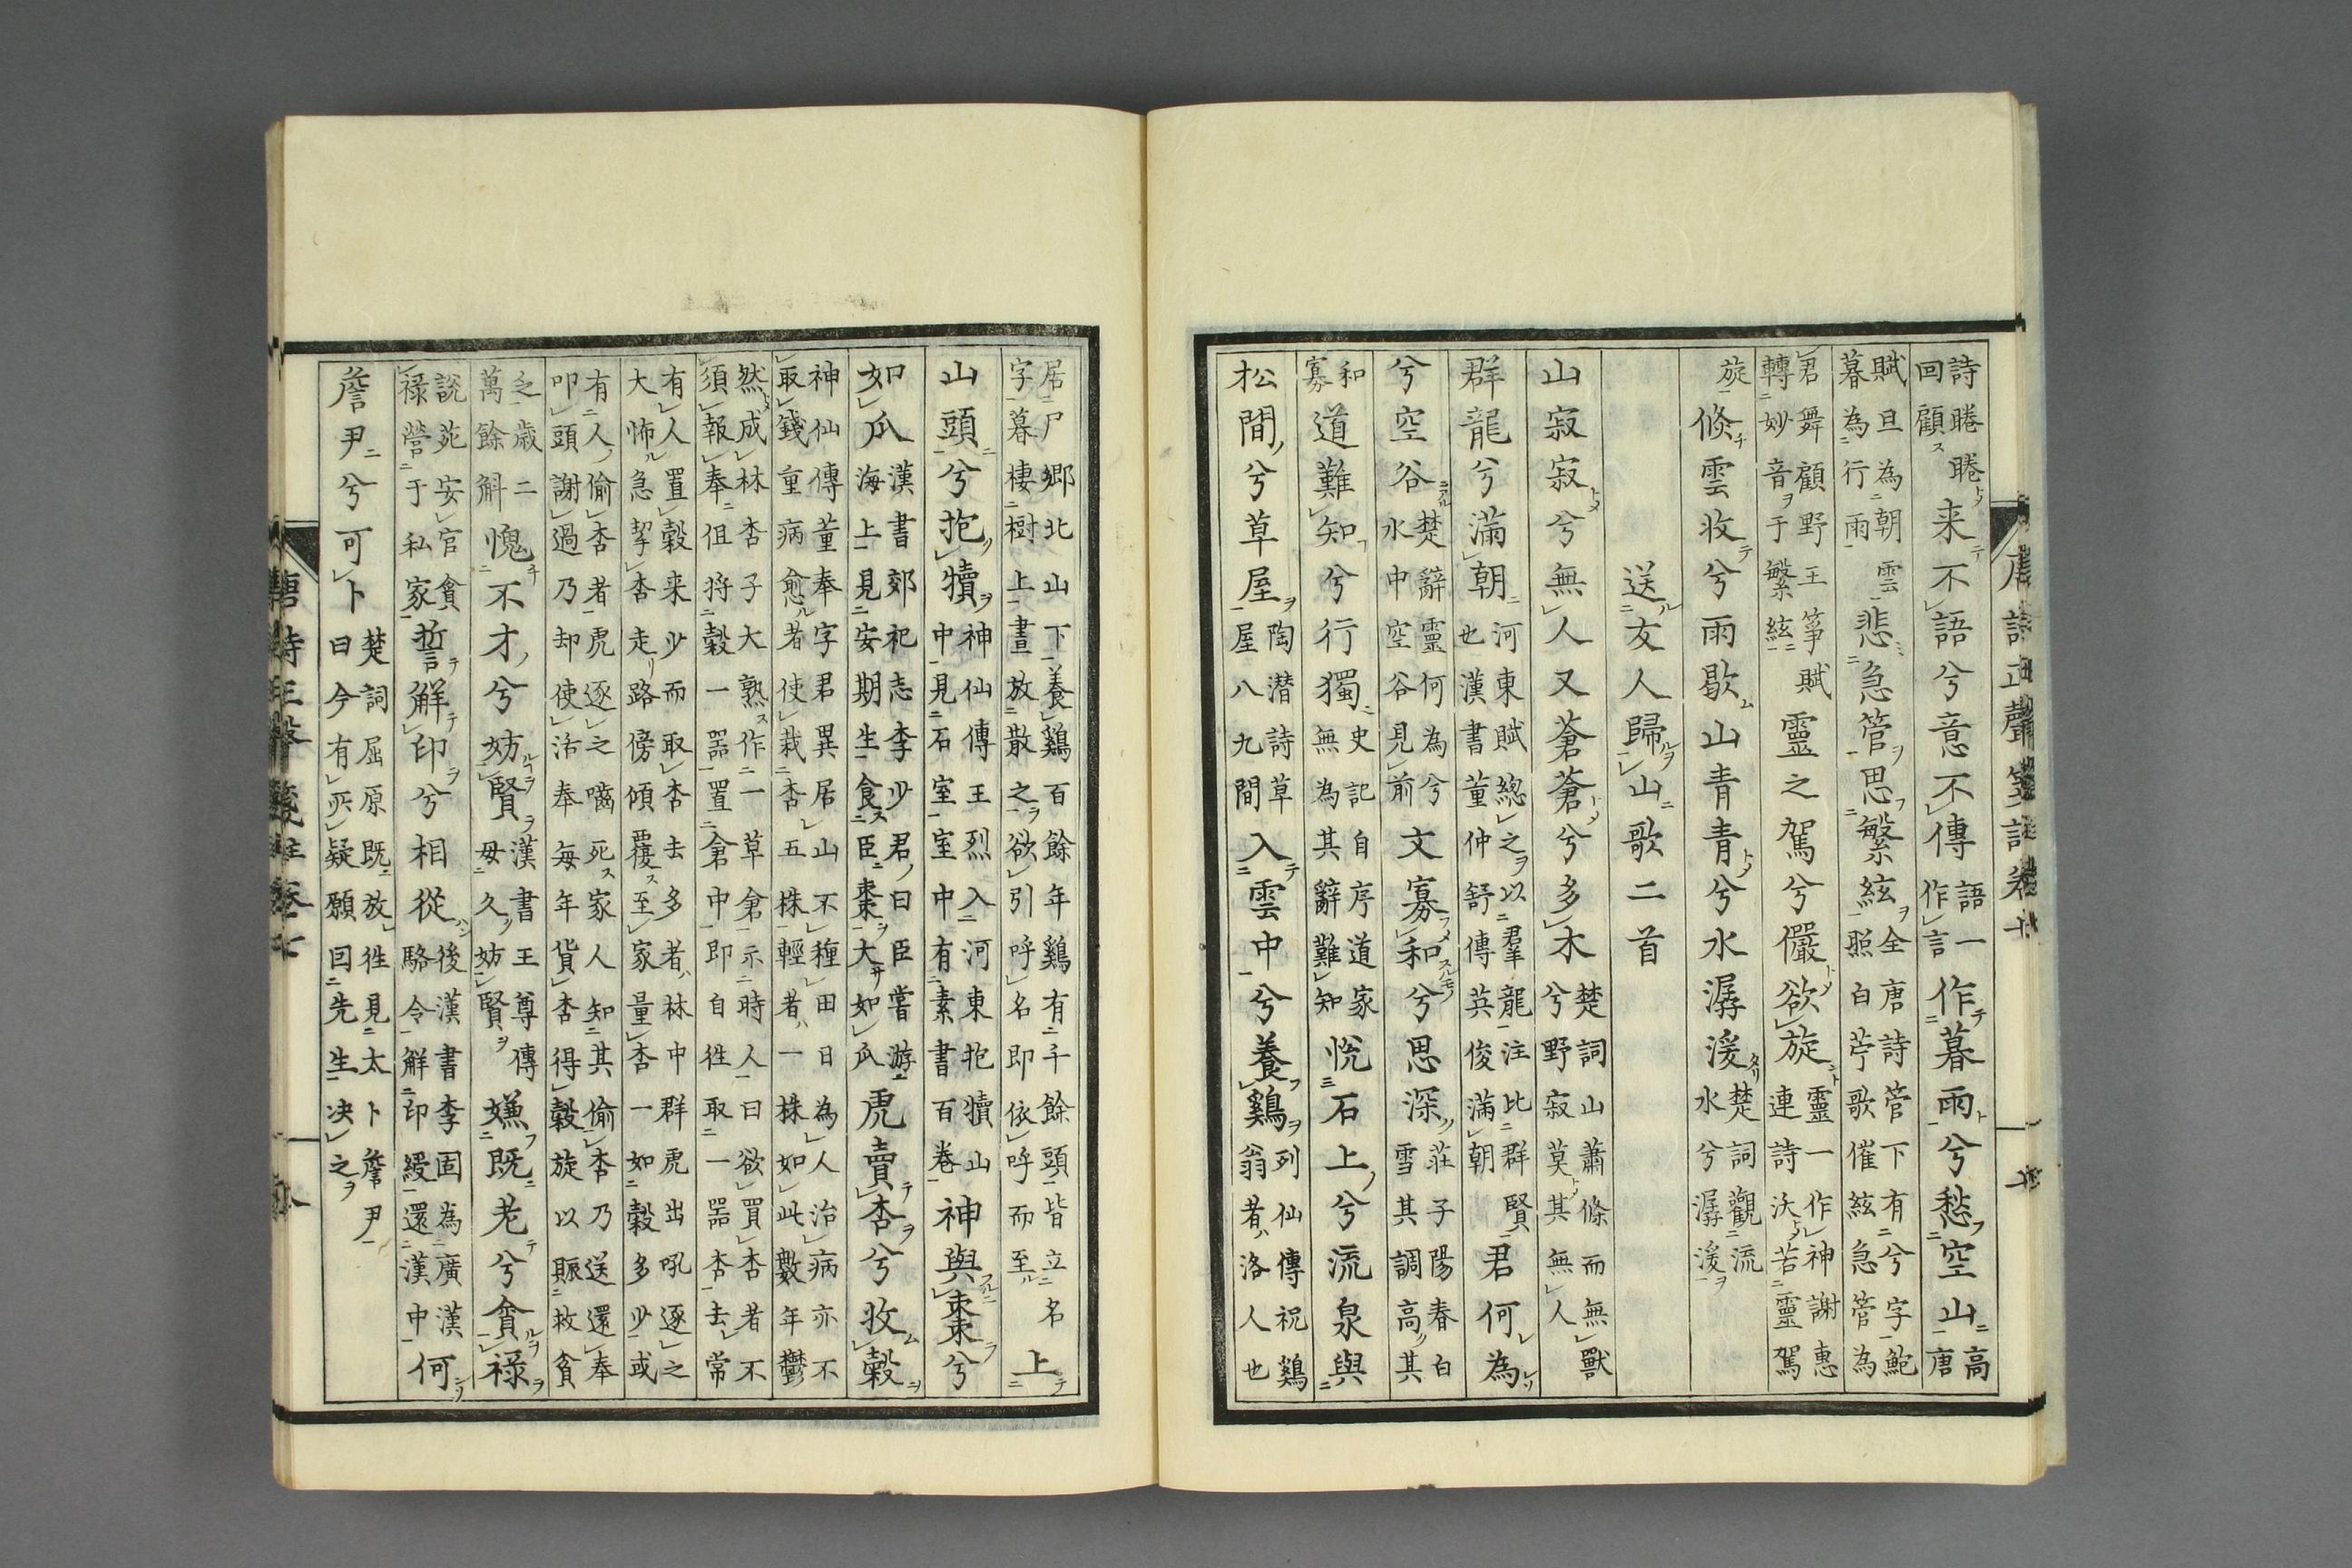 詩睠睠回顧来不語兮意不傳語一作言作暮雨兮愁空山高唐
賦旦為朝雲暮為行雨悲急管思繁絃全唐詩管下有兮字鮑照白苧歌催絃急管為
君舞顧野王筝賦轉妙音于繁絃靈之駕兮儼欲旋靈一作神謝惠連詩沃若靈駕
旋倏雲收兮雨歇山青青兮水潺湲楚詞觀流水兮潺湲
送友人歸山歌二首
山寂寂兮無人又蒼蒼兮多木楚詞山蕭條而無獸兮野寂莫其無人
群龍兮滿朝河東賦總之以羣龍注比群賢也漢書董仲舒傳英俊滿朝君何為
兮空谷楚辭靈何為兮水中空谷見前文寡和兮思深莊子陽春白雪其調高其
和寡道難知兮行獨史記自序道家無為其辭難知悅石上兮流泉與
松間兮草屋陶潜詩草屋八九間入雲中兮養鷄列仙傳祝鷄翁者洛人也
唐詩正聲箋註卷七
居尸鄉北山下養鷄百餘年鷄有千餘頭皆立名字暮棲樹上晝放散之欲引呼名即依呼而至上
山頭兮抱犢神仙傳王烈入河東抱犢山中見石室室中有素書百卷神與棗兮
如瓜漢書郊祀志李少君曰臣嘗游海上見安期生食臣棗大如瓜虎賣杏兮收穀
神仙傳董奉字君異居山不種田日為人治病亦不取錢重病愈者使栽杏五株輕者一株如此數年鬱
然成林杏子大熟作一草倉示時人曰欲買杏者不須報奉但將穀一器置倉中即自徃取一器杏去常
有人置穀来少而取杏去多者林中群虎出吼逐之大怖急挈杏走路傍傾覆至家量杏一如穀多少或
有人偷杏者虎逐之嚙死家人知其偷杏乃送還奉叩頭謝過乃却使活奉每年貨杏得穀旋以賑救貧
乏歲二萬餘斛愧不才兮妨賢漢書王尊傳毋久妨賢嫌既老兮貪禄
說苑安官貪禄營于私家誓解印兮相從後漢書李固為廣漢駱令解印綬還漢中何
詹尹兮可卜楚詞屈原既放徃見太卜詹尹曰今有所疑願回先生决之
唐詩正聲箋註卷七